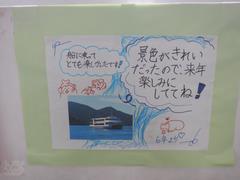 船に乗って
とても楽しかったです!!
景色がきれい
だったので、来年
楽しみに
しててね!